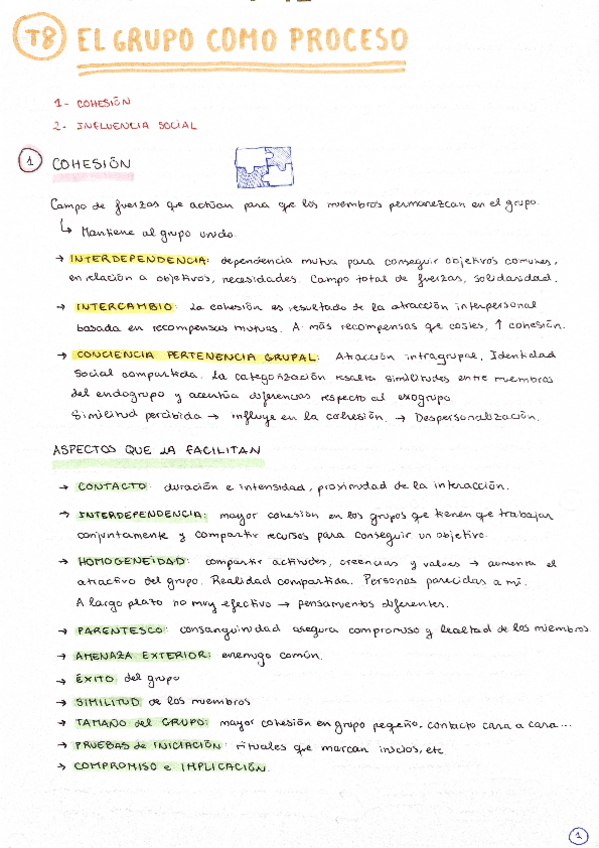 T8 EL GRUPO COMO PROCESO
1- COHESIÓN
2- INFLUENCIA SOCIAL
1 COHESIÓN
Campo de fuerzas que actúan para que los miembros permanezcan en el grupo.
↳ Mantiene al grupo unido.
→ INTERDEPENDENCIA: dependencia mutua para conseguir objetivos comunes,
en relación a objetivos, necesidades. Campo total de fuerzas, solidaridad.
→ INTERCAMBIO: La cohesión es resultado de la atracción interpersonal
basada en recompensas mutuas. A más recompensas que costes, ↑ cohesión.
→ CONCIENCIA PERTENENCIA GRUPAL: Atracción intragrupal. Identidad
Social compartida. La categorización resalta similitudes entre miembros
del endogrupo y acentúa diferencias respecto al exogrupo
Similitud percibida → influye en la cohesión. → Despersonalización.
ASPECTOS QUE LA FACILITAN
→ CONTACTO: duración e intensidad, proximidad de la interacción.
→ INTERDEPENDENCIA: mayor cohesión en los grupos que tienen que trabajar
conjuntamente y compartir recursos para conseguir un objetivo.
→ HOMOGENEIDAD: compartir actitudes, creencias y valores → aumenta el
atractivo del grupo. Realidad compartida. Personas parecidas a mí.
A largo plazo no muy efectivo → pensamientos diferentes.
→ PARENTESCO: consanguinidad asegura compromiso y lealtad de los miembros.
→ AMENAZA EXTERIOR: enemigo común.
→ ÉXITO del grupo
→ SIMILITUD de los miembros
→ TAMAÑO del GRUPO: mayor cohesión en grupo pequeño, contacto cara a cara...
→ PRUEBAS de INICIACIÓN: rituales que marcan inicios, etc
→ COMPROMISO e IMPLICACIÓN.
1